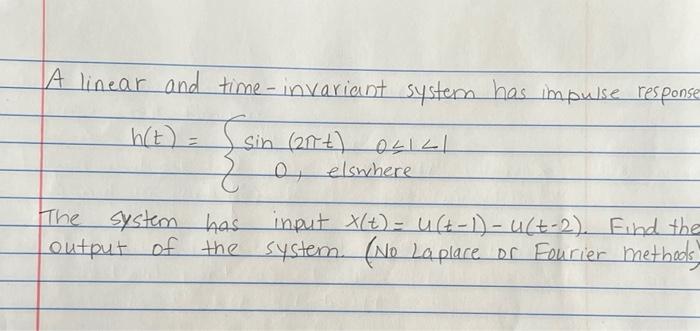 A linear and time-invariant system has impulse response
h(t) = { sin (2πt) 0≤1<1
0, elswhere
The system has input x(t) = u(t-1) - u(t-2). Find the
output of the system. (No Laplace or Fourier methods)